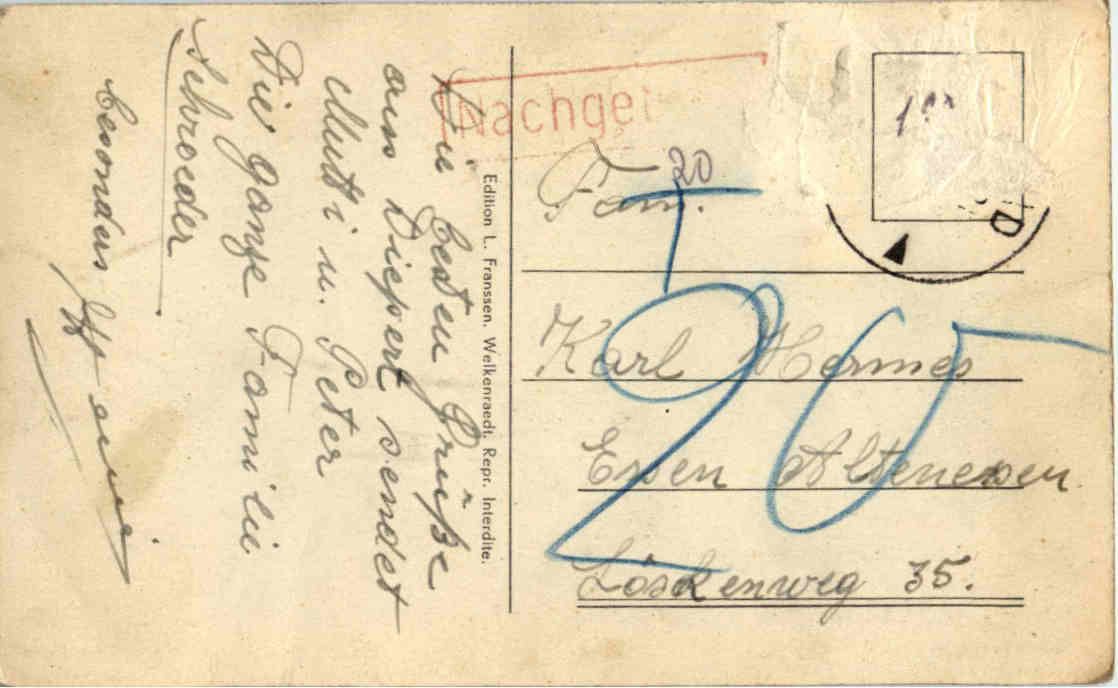 Die besten Grüße
aus Diepert sendet
Mutti u. Peter
Die ganze Familie
Schroeder
besonders
Edition L. Franssen. Welkenraedt. Repr. Interdite.
Nachge
20
Fam.
T
Karl Hermes
Essen Altenessen
Löskenweg 35.
20
D